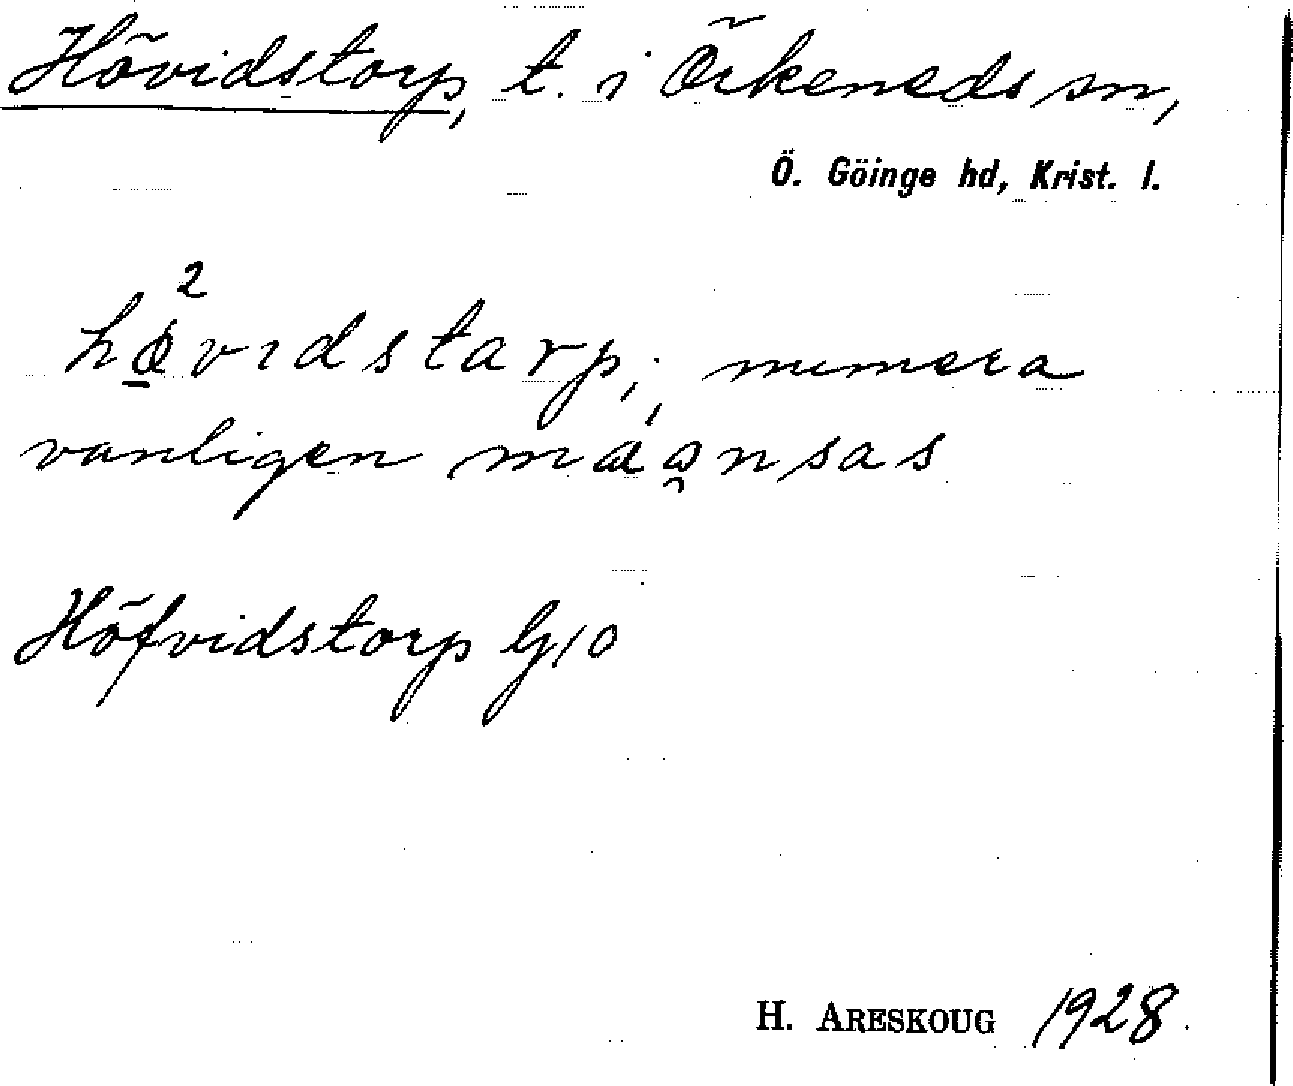 Hövidstorp, t. i Örkeneds sn,
Ö. Göinge hd, Krist. l.
hø̱²vıdstarp; numera
vanligen måo̯nsas
Höfvidstorp G10
H. ARESKOUG 1928.